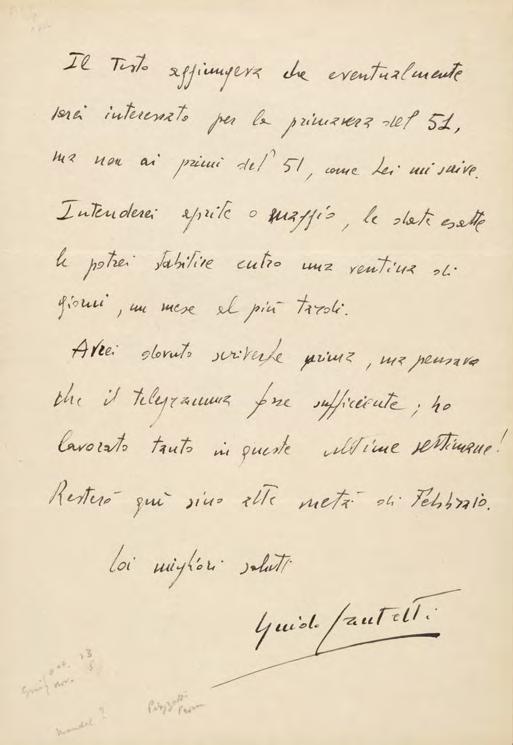 Il Testo aggiungeva che eventualmente
sarei interessato per la primavera del 51,
ma non ai primi del 51, come Lei mi scrive.
Intenderei aprile o maggio, le date esatte
le potrei stabilire entro una ventina di
giorni, un mese al più tardi.
Avrei dovuto scriverle prima, ma pensavo
che il telegramma fosse sufficiente; ho
lavorato tanto in queste ultime settimane!
Resterò qui sino alla metà di Febbraio.
Coi migliori saluti
Guido Cantelli